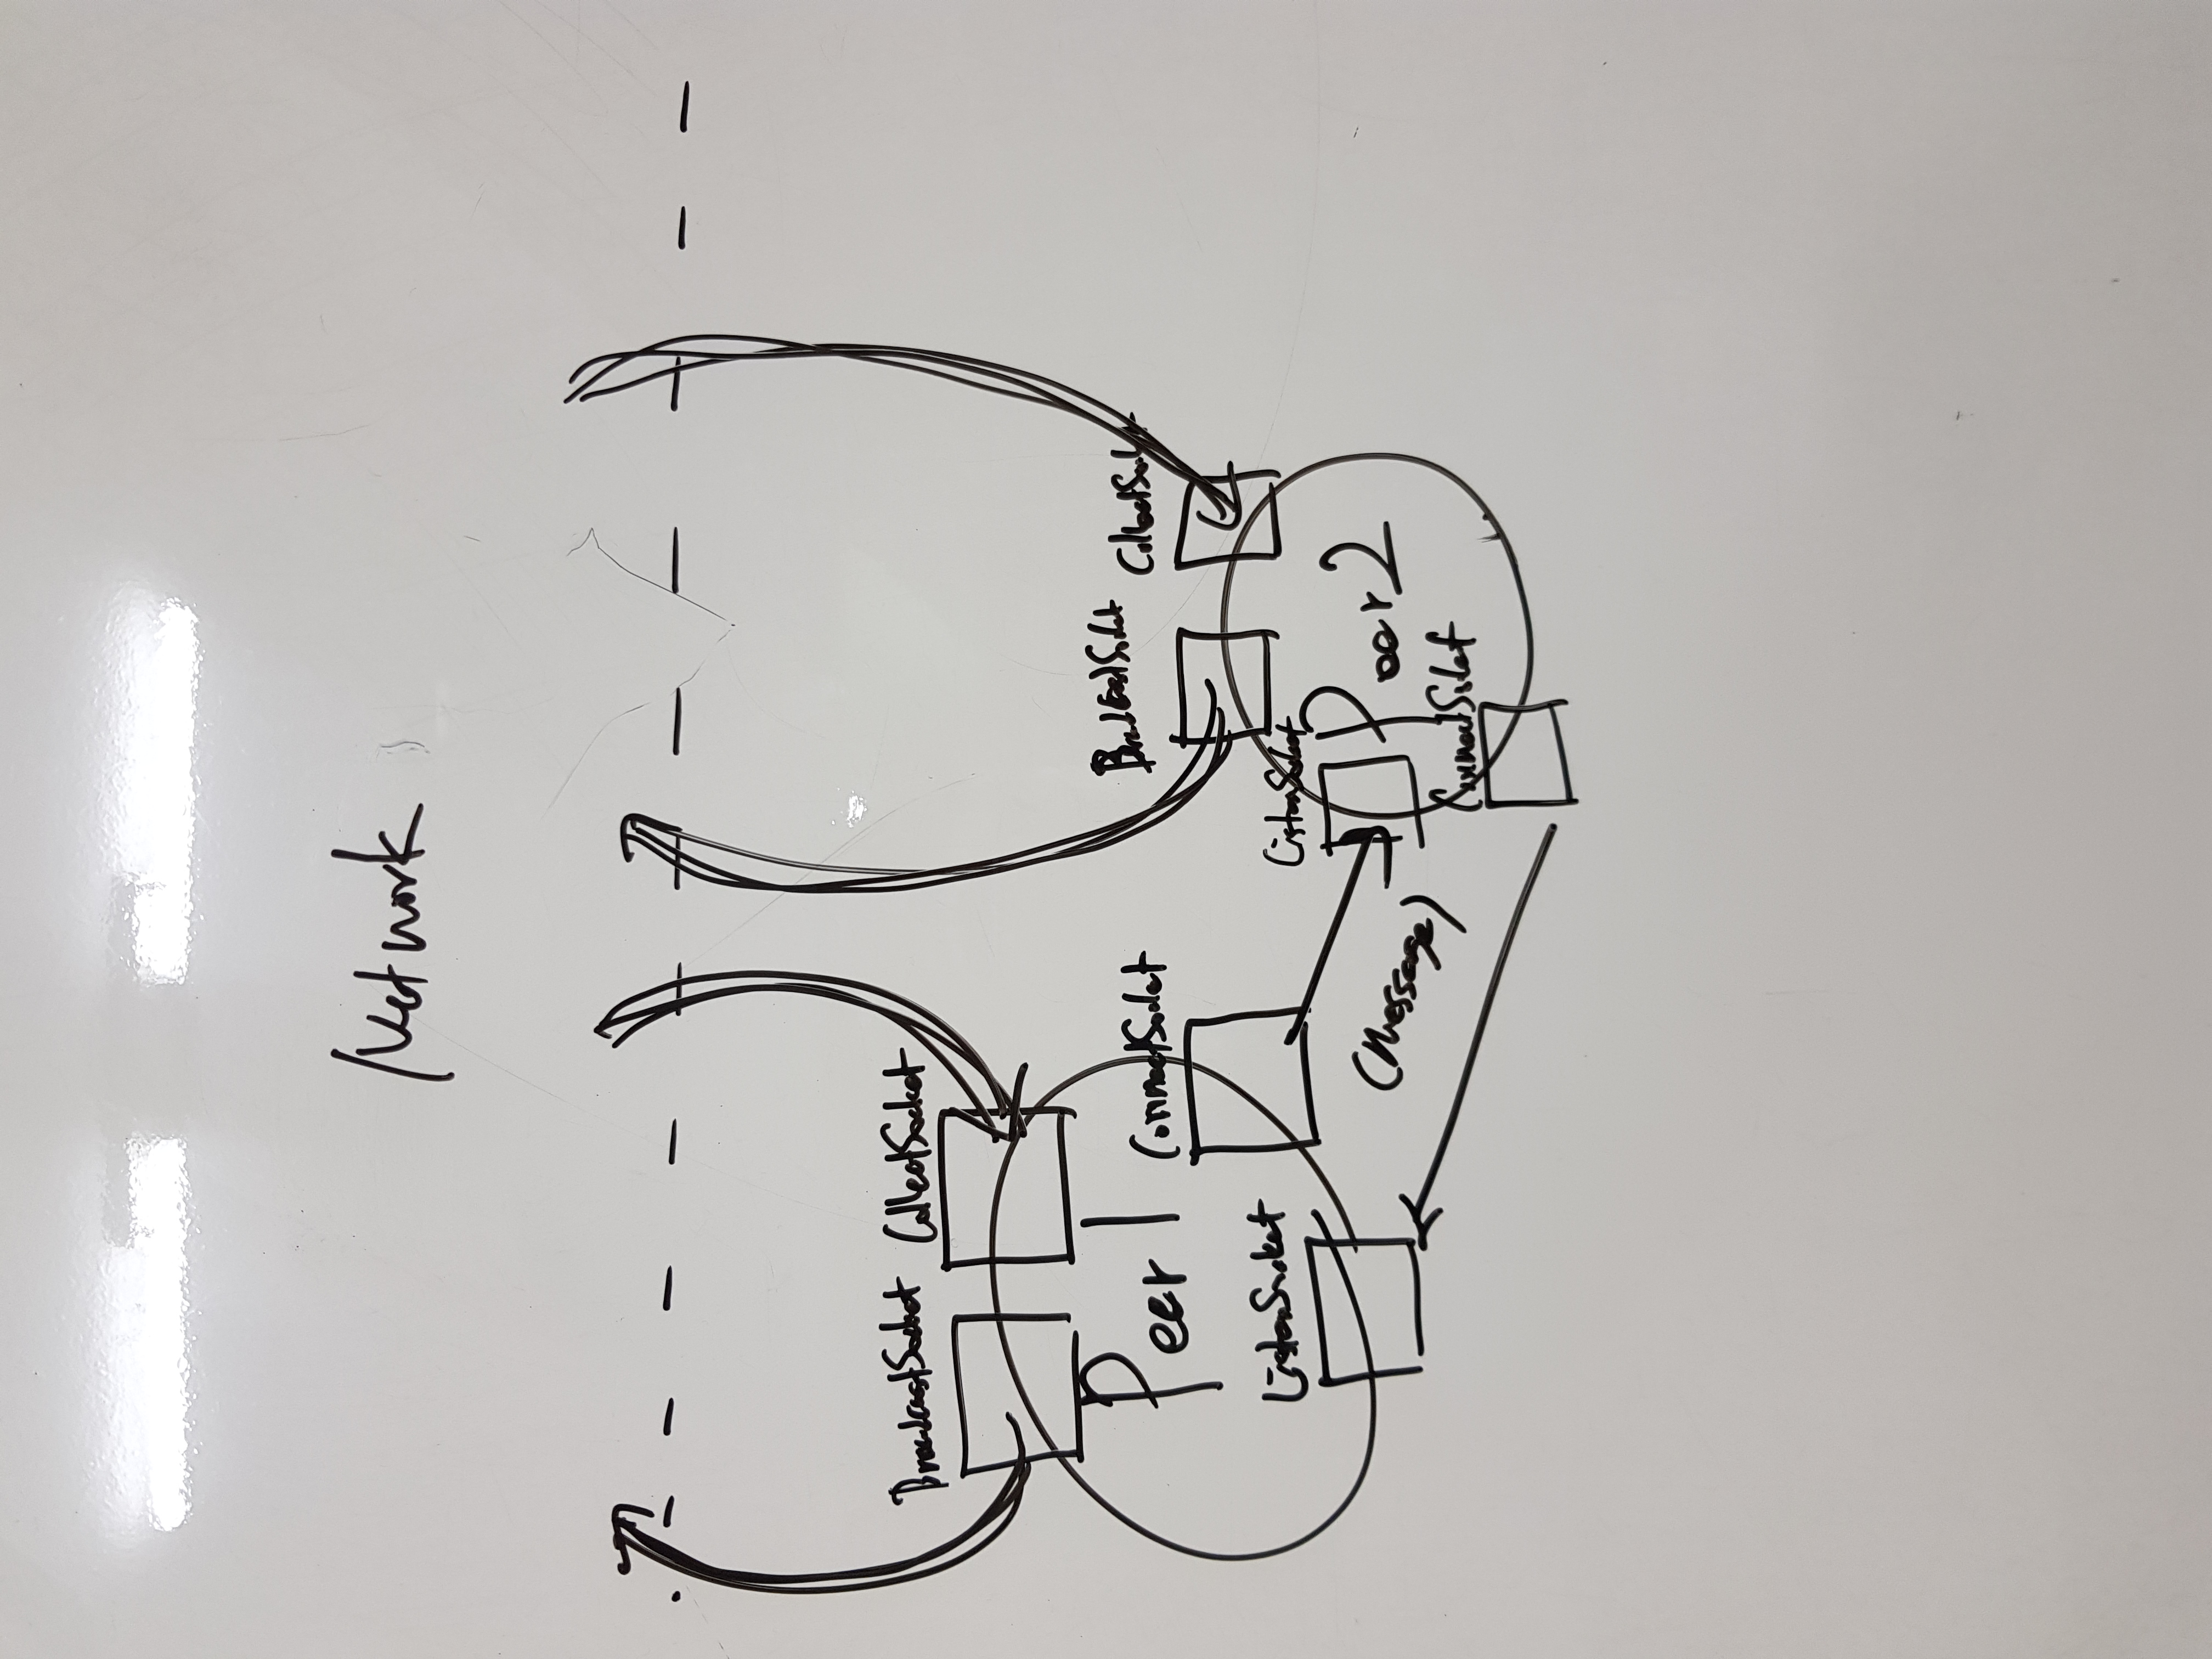 Network
BroadcastSocket
CollectSocket
Peer 1
ConnectSocket
ListenSocket
BroadcastSocket
CollectSocket
ListenSocket
Peer 2
(Message)
ConnectSocket